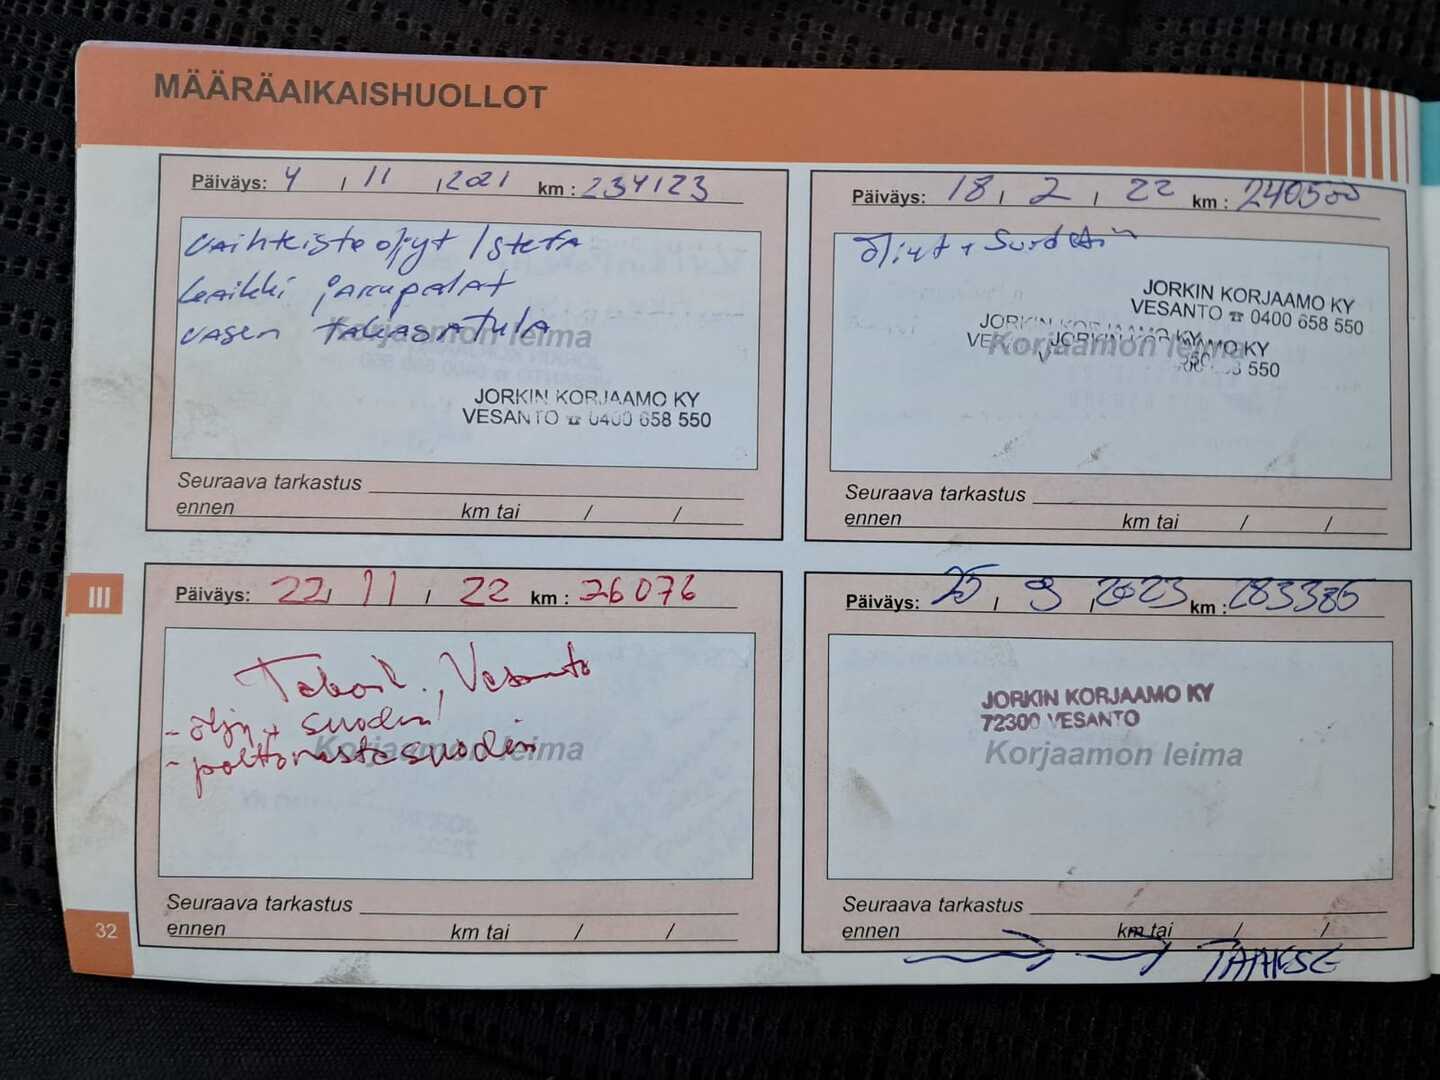 MÄÄRÄAIKAISHUOLLOT
Päiväys: 4 / 11 / 2021 km : 234123
vaihteisto öljyt /
kaikki jarrupalat
vasen takasatula
Korjaamon leima
JORKIN KORJAAMO KY
VESANTO ☎ 0400 658 550
Seuraava tarkastus
ennen km tai / /
Päiväys: 18 / 2 / 22 km : 240500
Öljyt + Suodatin
JORKIN KORJAAMO KY
VESANTO ☎ 0400 658 550
JORKIN KORJAAMO KY
JORKIN KORJAAMO KY
Korjaamon leima
Seuraava tarkastus
ennen km tai / /
III
Päiväys: 22 / 11 / 22 km : 26076
Teboil, Vesanto
- öljy + suodin
- polttoainesuodin
Korjaamon leima
Seuraava tarkastus
ennen km tai / /
Päiväys: 25 / 9 / 2023 km : 283385
JORKIN KORJAAMO KY
72300 VESANTO
Korjaamon leima
Seuraava tarkastus
ennen km tai / /
32